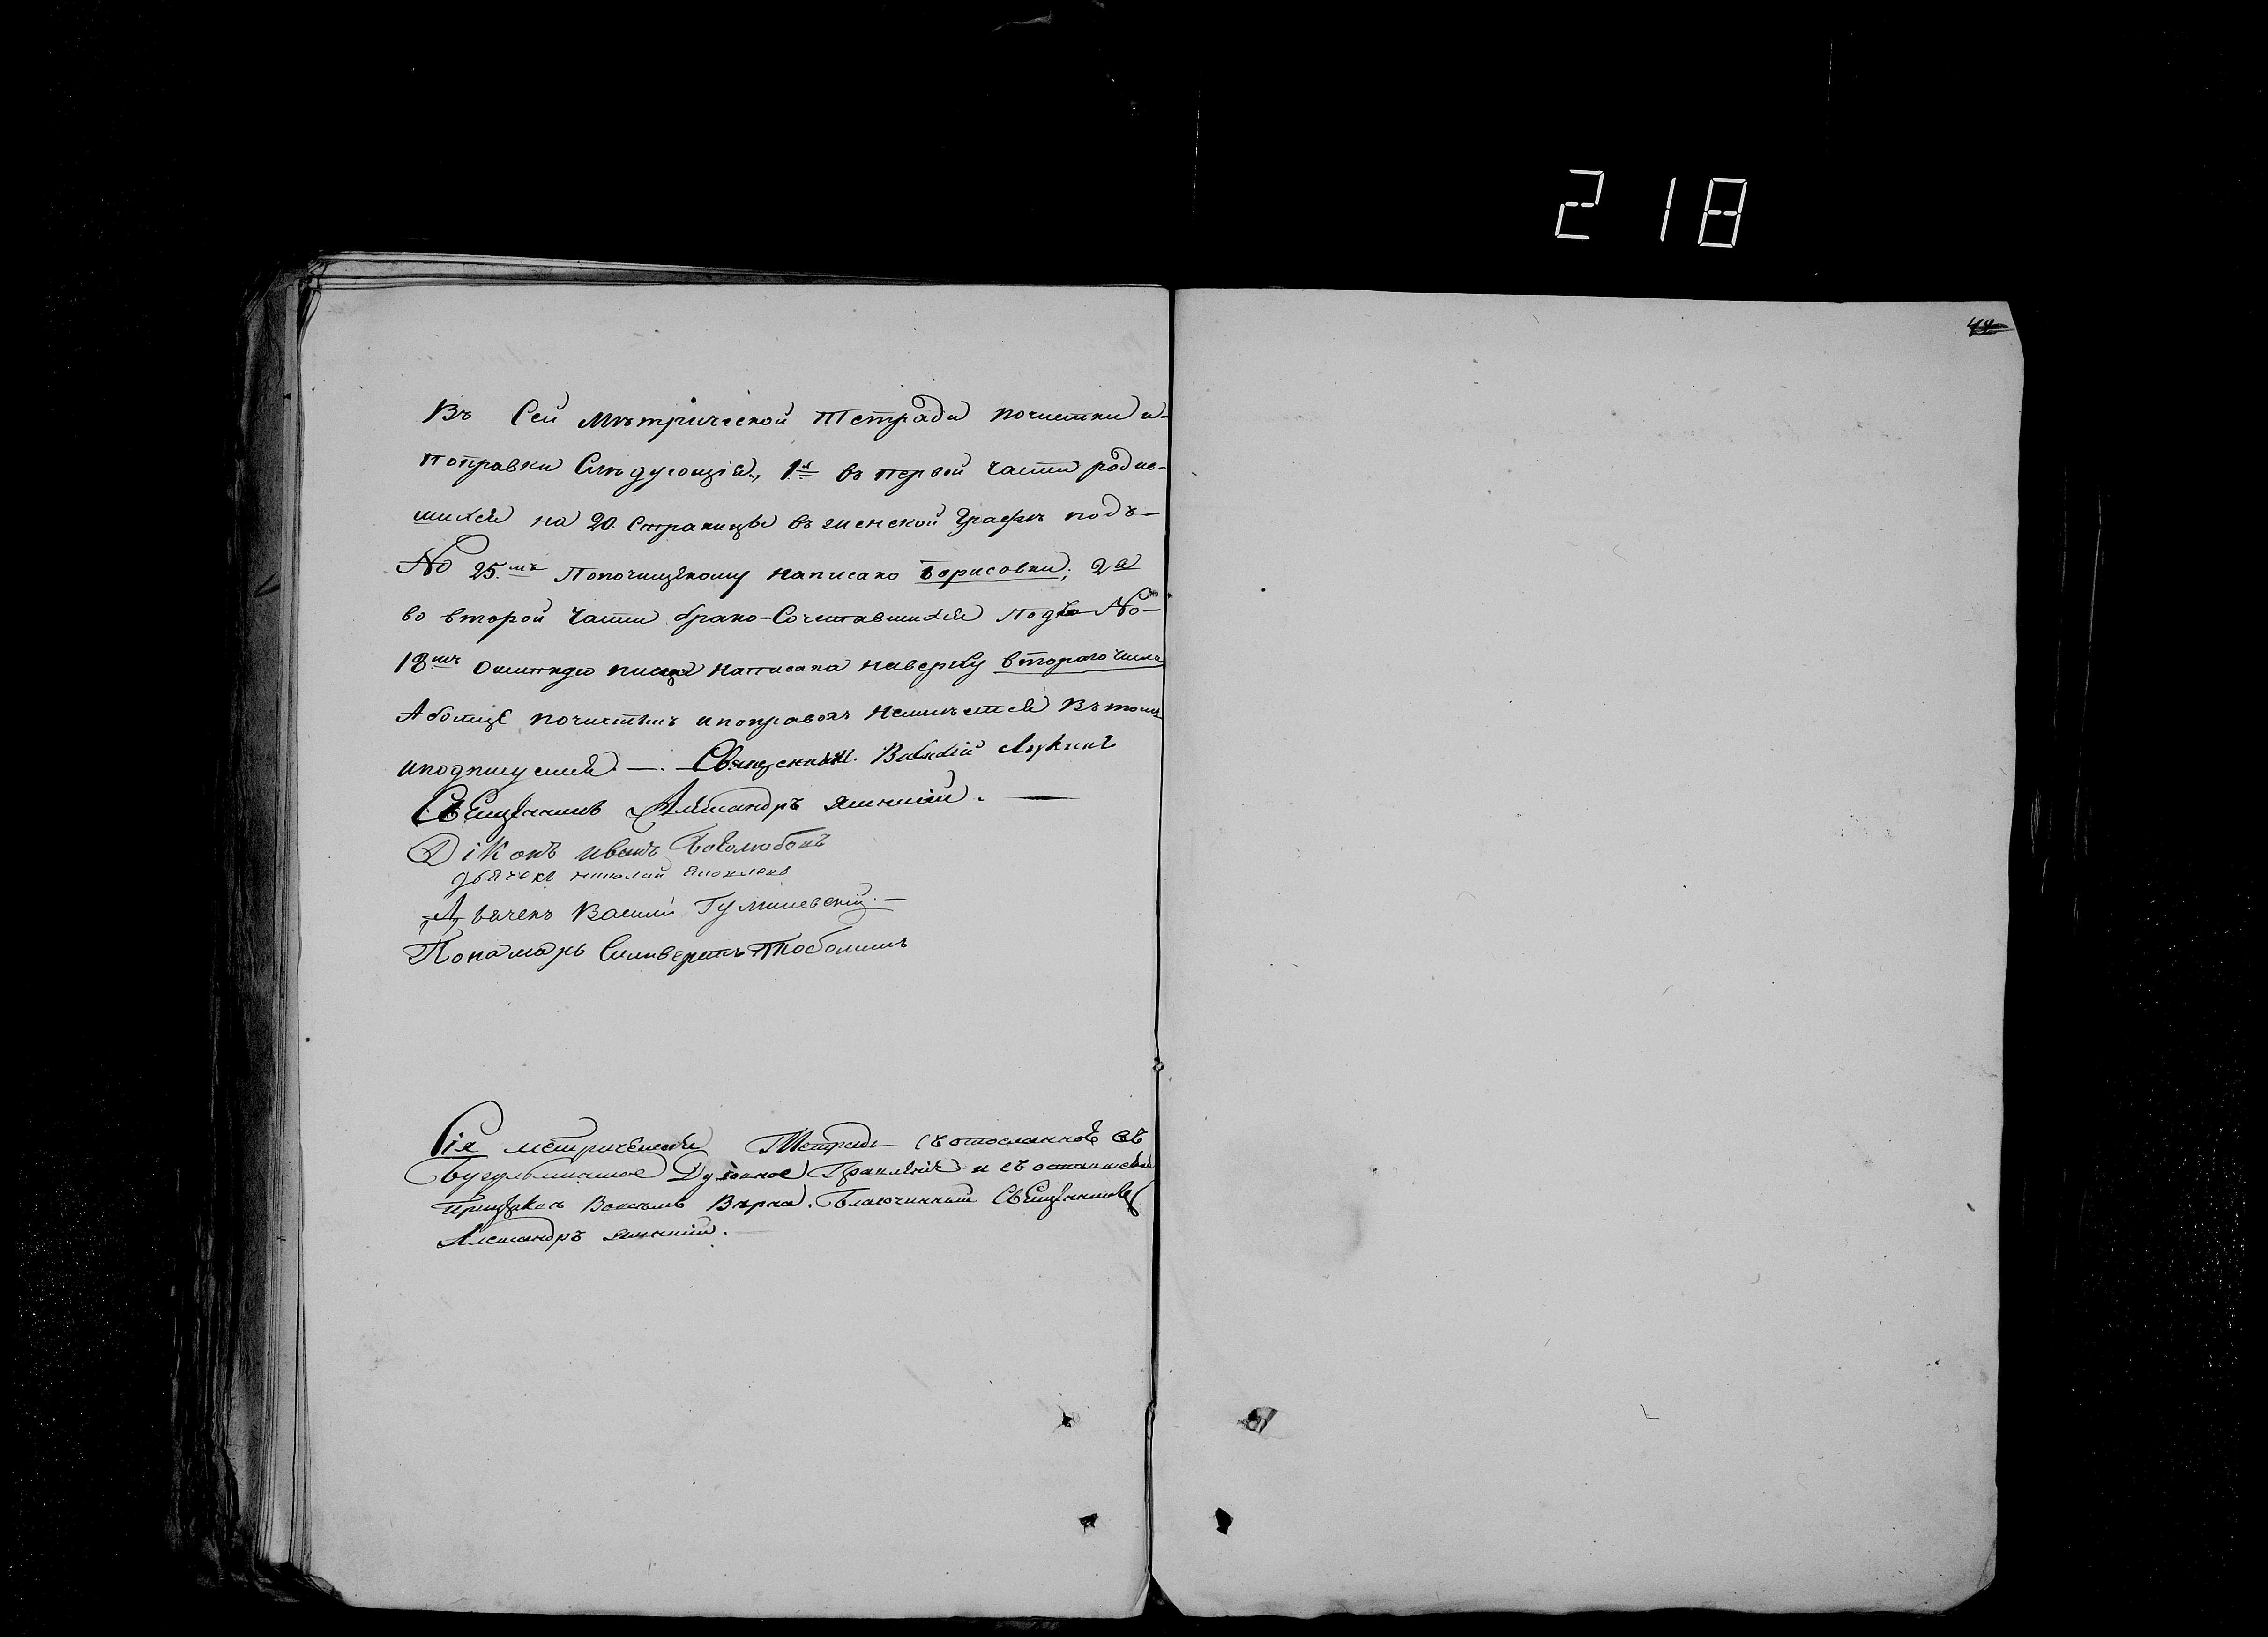 218
Въ Сей Мѣтрической Тетради почистки и-
поправки Слѣдующія, 1я въ первой части родив-
шихся на 20. Страницѣ въ женской графѣ подъ-
No 25.мъ Попочищеному написано Борисовки; 2я
во второй части брако-Сочетавшихся подъ No-
18мъ Ошибкою писца написана наверху втораго числа
А более почистокъ и поправокъ неимѣется Въ томъ
и подпишуемся. —. Священникъ. Василій Лукинъ
Священникъ Александръ —
Діконъ Иванъ Боголюбовъ
дьячекъ николай
Дьячекъ Василий Гумилевскій. —
Понамарь Сильверстъ Тобо
Сія метрическая Тетрадь Съ отосланной въ
Бугульминское Духовное Правленіе и съ оставшейся
Вѣрна. Благочинный Священникъ
Александръ